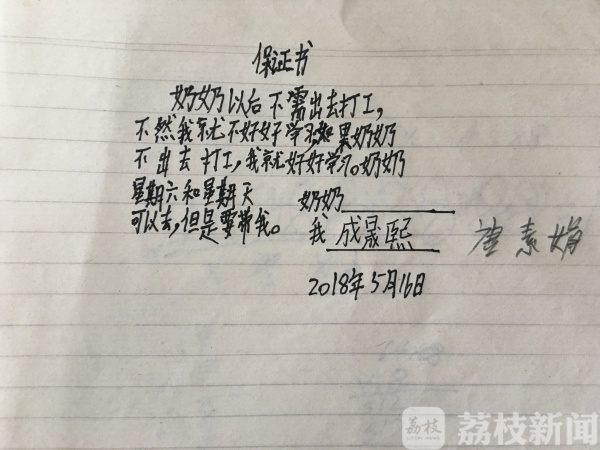 保证书
奶奶以后不需出去打工,
不然我就不好好学习。如果奶奶
不出去打工,我就好好学习。奶奶
星期六和星期天
可以去,但是要带我。
奶奶
我 成晟熙
素娟
2018年5月16日
荔枝
荔枝新闻